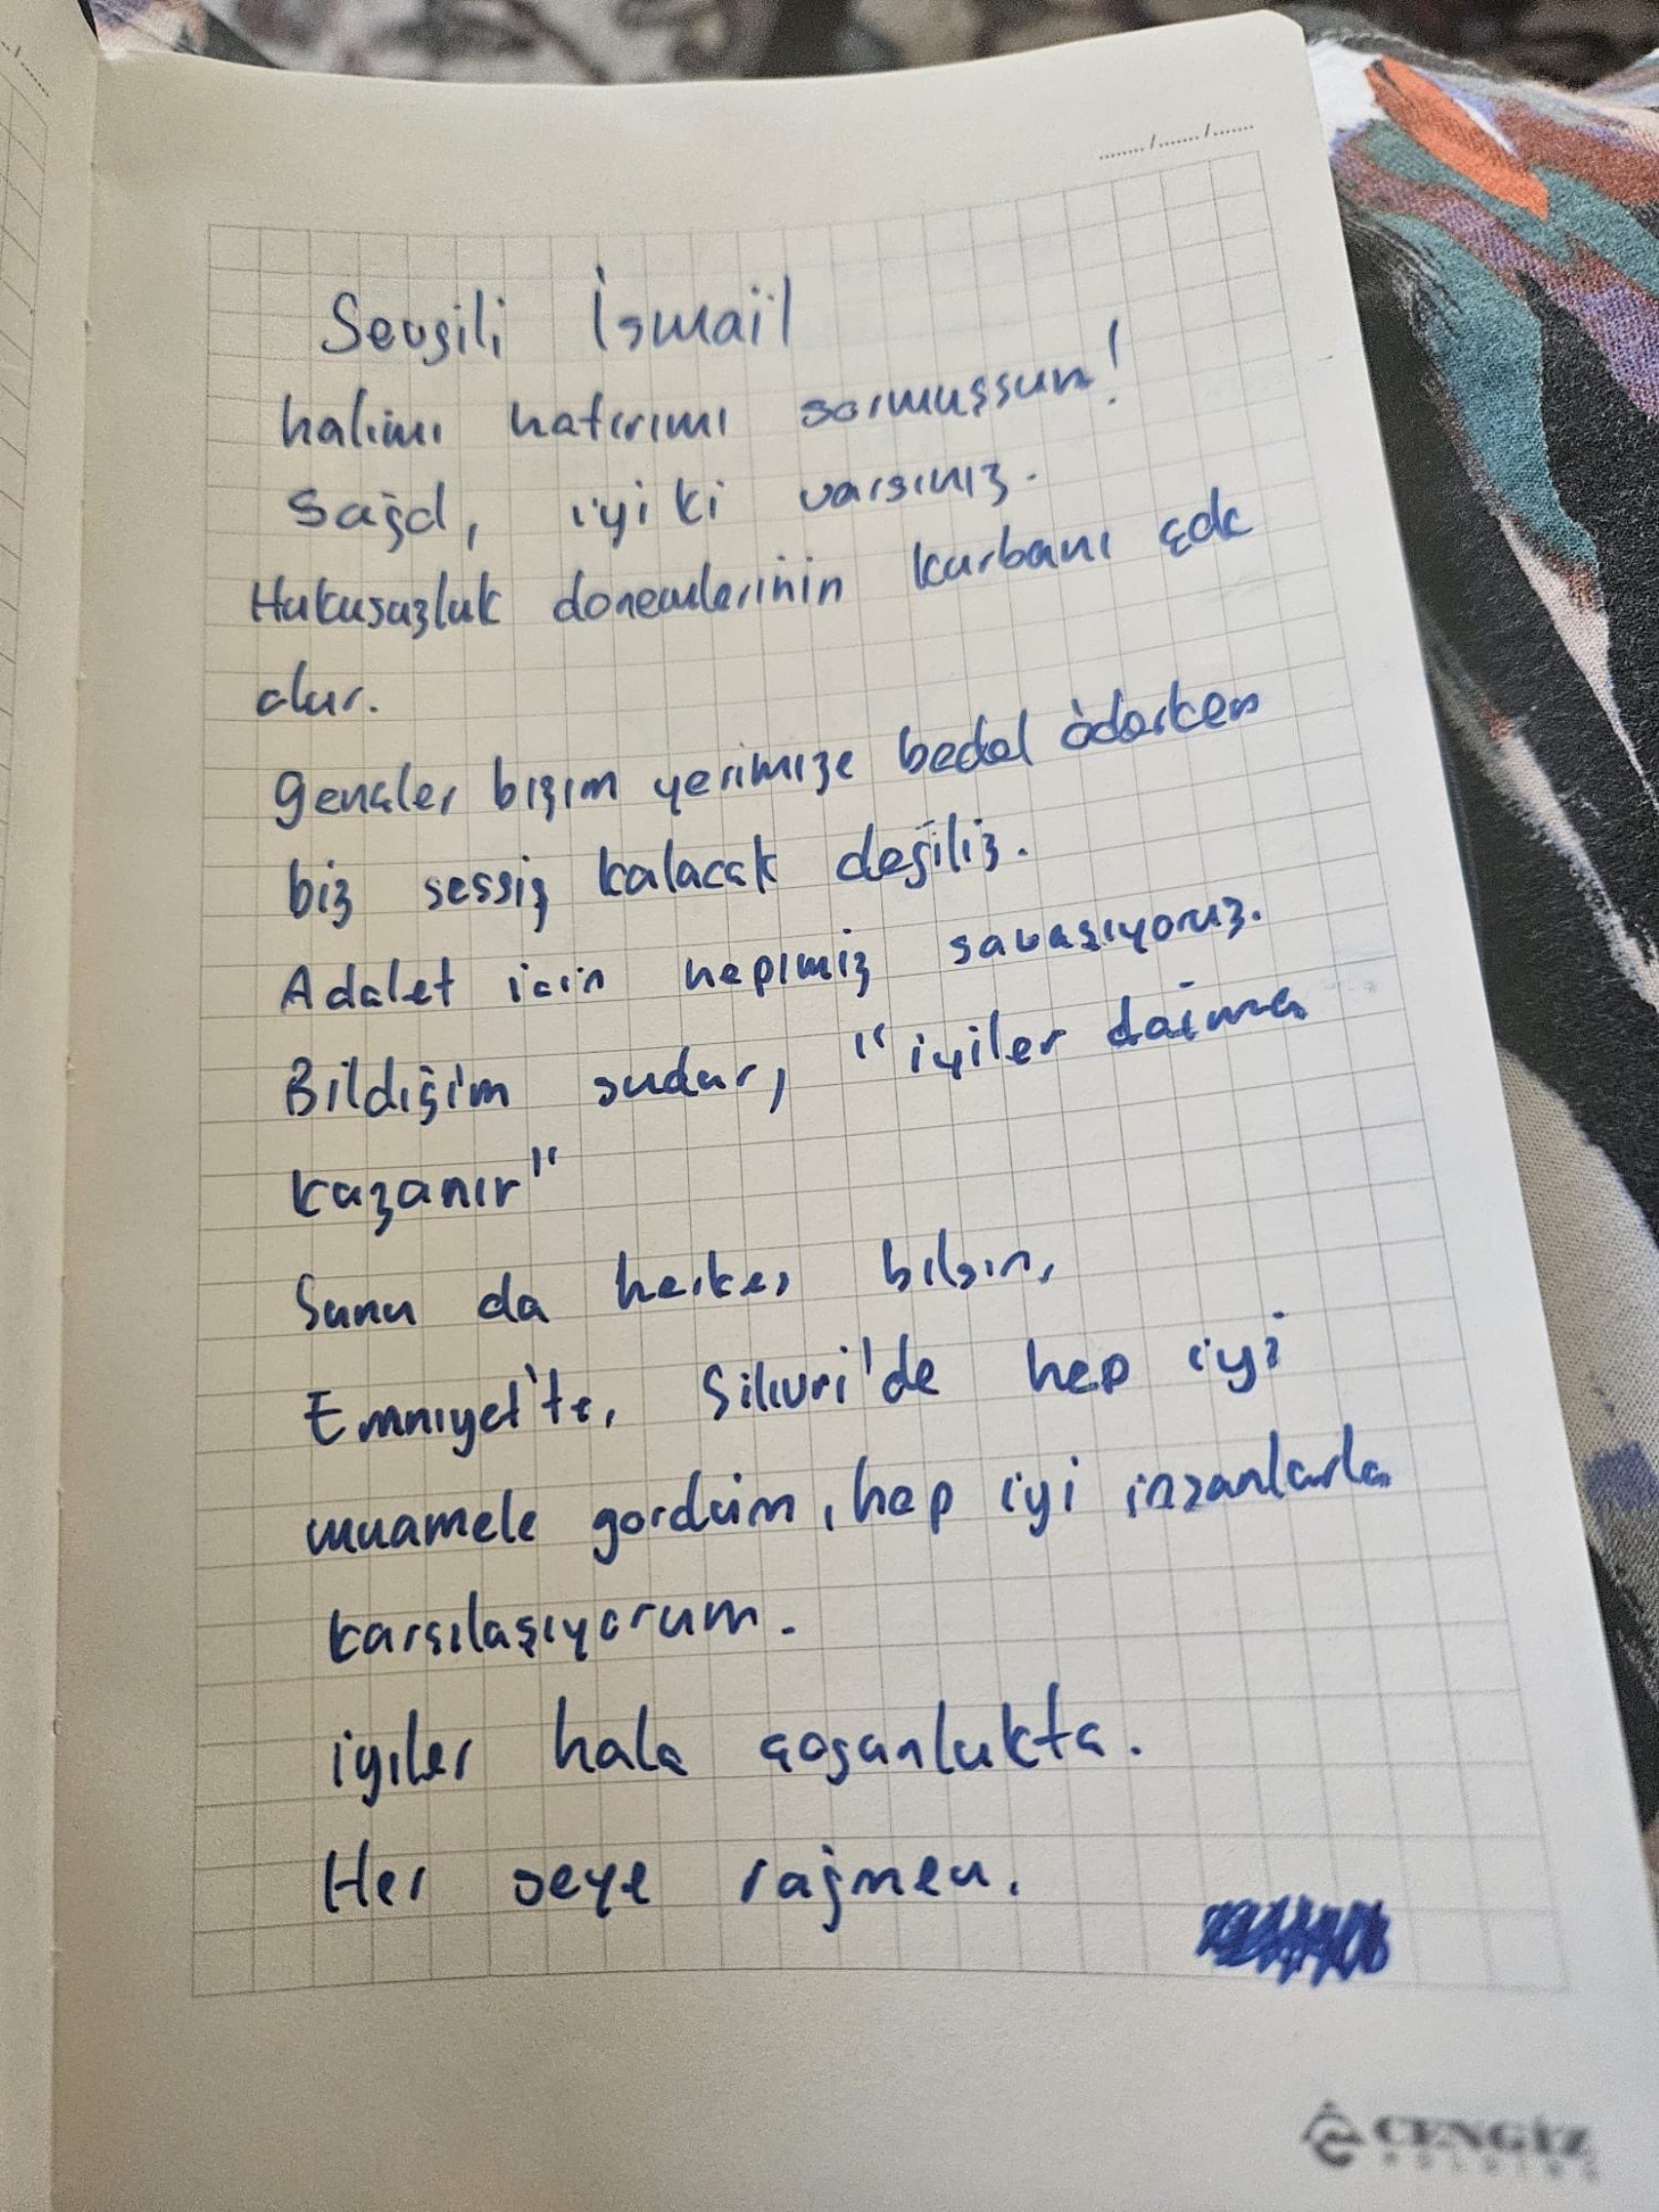 ......../......./.......
Sevgili İsmail
halimi hatırımı sormuşsun!
Sağol, iyi ki varsınız.
Hukusuzluk donemlerinin kurbanı çok
olur.
gençler bizim yerimize bedel öderken
biz sessiz kalacak değiliz.
Adalet için hepimiz savaşıyoruz.
Bildiğim sudur, "iyiler daima
kazanır"
Sunu da herkes bilsin,
Emniyet'te, Silivri'de hep iyi
muamele gordüm, hep iyi insanlarla
karşılaşıyorum.
iyiler hala çoğunlukta.
Her seye rağmen.
CENGİZ
HOLDING